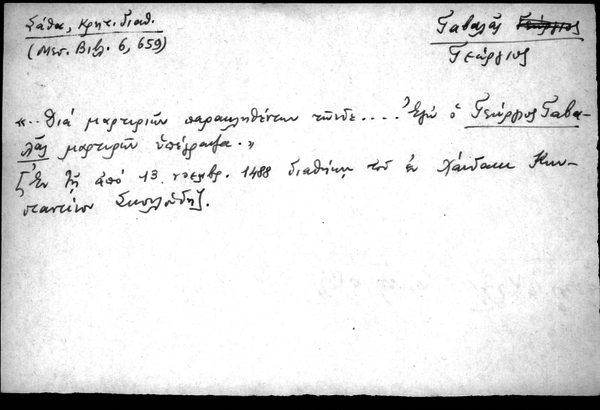 Σάθα, Κρητ. διαθ.
(Μεσ. Βιβλ. 6, 659)
Γαβαλᾶς Γεώργιος
Γεώργιος
«.. διά μαρτυριῶν παρακληθέντων τῶνδε.... Ἐγὼ ὁ Γεώργιος Γαβα-
λᾶς μαρτυρῶν ὑπέγραψα.»
[Ἐν τῇ ἀπό 13 νοεμβρ. 1488 διαθήκῃ τοῦ ἐν Χάνδακι Κων-
σταντίνου].